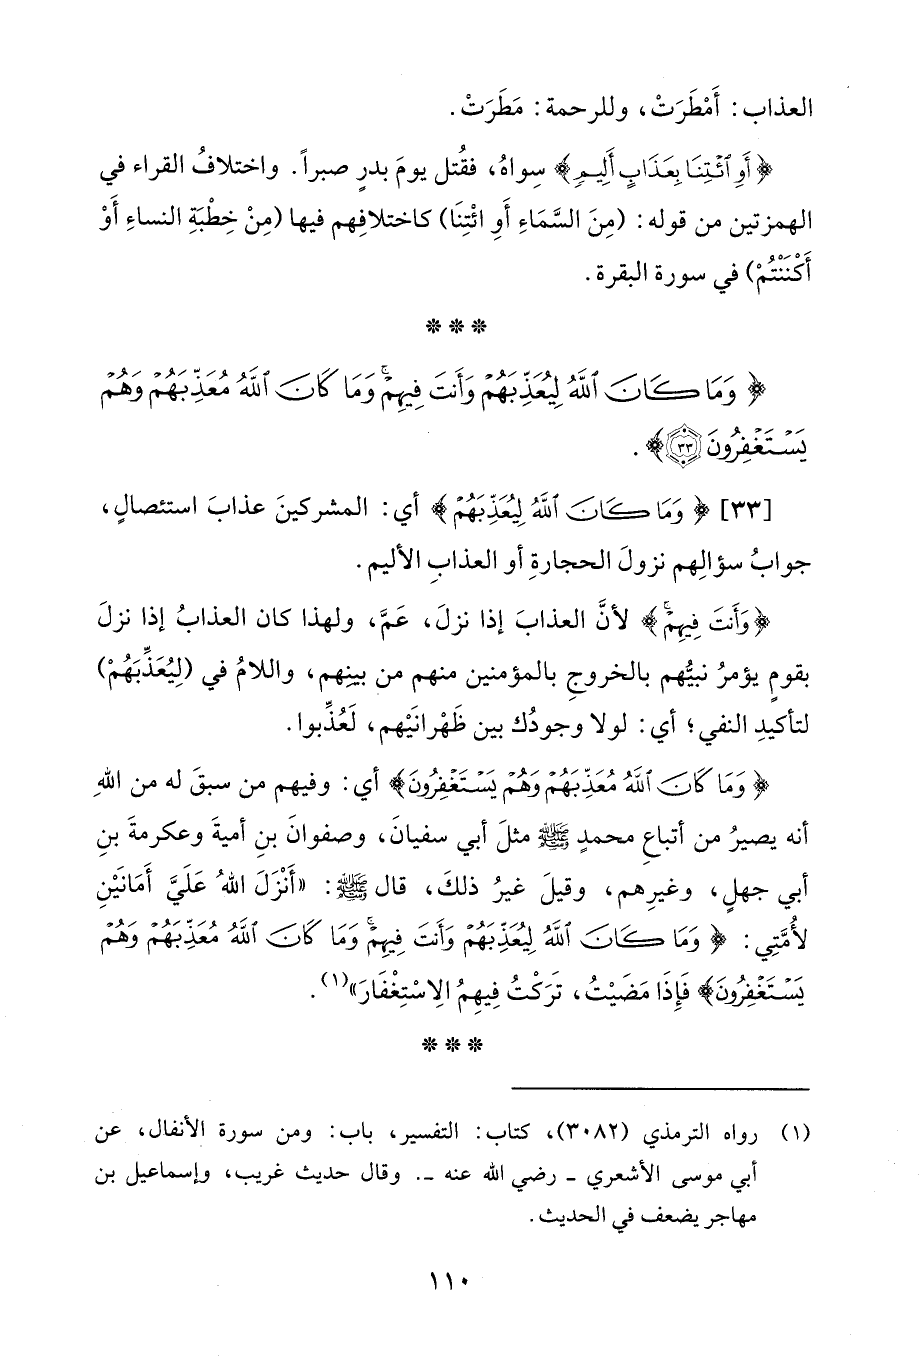 العذاب: أَمْطَرَتْ، وللرحمة: مَطَرَتْ.
﴿أَوِ ٱئْتِنَا بِعَذَابٍ أَلِيمٍ﴾ سِواهُ، فقُتل يومَ بدرٍ صبراً. واختلافُ القراء في
الهمزتين من قوله: (مِنَ السَّمَاءِ أَوِ ائْتِنَا) كاختلافِهم فيها (مِنْ خِطْبَةِ النساءِ أَوْ
أَكْنَنْتُمْ) في سورة البقرة.
* * *
﴿وَمَا كَانَ ٱللَّهُ لِيُعَذِّبَهُمْ وَأَنتَ فِيهِمْۚ وَمَا كَانَ ٱللَّهُ مُعَذِّبَهُمْ وَهُمْ
يَسْتَغْفِرُونَ ٣٣﴾.
[٣٣] ﴿وَمَا كَانَ ٱللَّهُ لِيُعَذِّبَهُمْ﴾ أي: المشركينَ عذابَ استئصالٍ،
جوابُ سؤالِهم نزولَ الحجارةِ أو العذابِ الأليم.
﴿وَأَنتَ فِيهِمْۚ﴾ لأنَّ العذابَ إذا نزلَ، عَمَّ، ولهذا كان العذابُ إذا نزلَ
بقومٍ يؤمرُ نبيُّهم بالخروجِ بالمؤمنين منهم من بينِهم، واللامُ في (لِيُعَذِّبَهُمْ)
لتأكيدِ النفي؛ أي: لولا وجودُك بين ظَهْرانَيْهم، لَعُذِّبوا.
﴿وَمَا كَانَ ٱللَّهُ مُعَذِّبَهُمْ وَهُمْ يَسْتَغْفِرُونَ﴾ أي: وفيهم من سبقَ له من اللهِ
أنه يصيرُ من أتباعِ محمدٍ ﷺ مثلَ أبي سفيانَ، وصفوانَ بنِ أميةَ وعكرمةَ بنِ
أبي جهلٍ، وغيرِهم، وقيلَ غيرُ ذلكَ، قال ﷺ: «أَنْزَلَ اللهُ عَلَيَّ أَمَانَيْنِ
لأُمَّتِي: ﴿وَمَا كَانَ ٱللَّهُ لِيُعَذِّبَهُمْ وَأَنتَ فِيهِمْۚ وَمَا كَانَ ٱللَّهُ مُعَذِّبَهُمْ وَهُمْ
يَسْتَغْفِرُونَ﴾ فَإِذَا مَضَيْتُ، تَرَكْتُ فِيهِمُ الِاسْتِغْفَارَ»(١).
* * *
(١) رواه الترمذي (٣٠٨٢)، كتاب: التفسير، باب: ومن سورة الأنفال، عن
أبي موسى الأشعري ـ رضي الله عنه ـ. وقال حديث غريب، وإسماعيل بن
مهاجر يضعف في الحديث.
١١٠